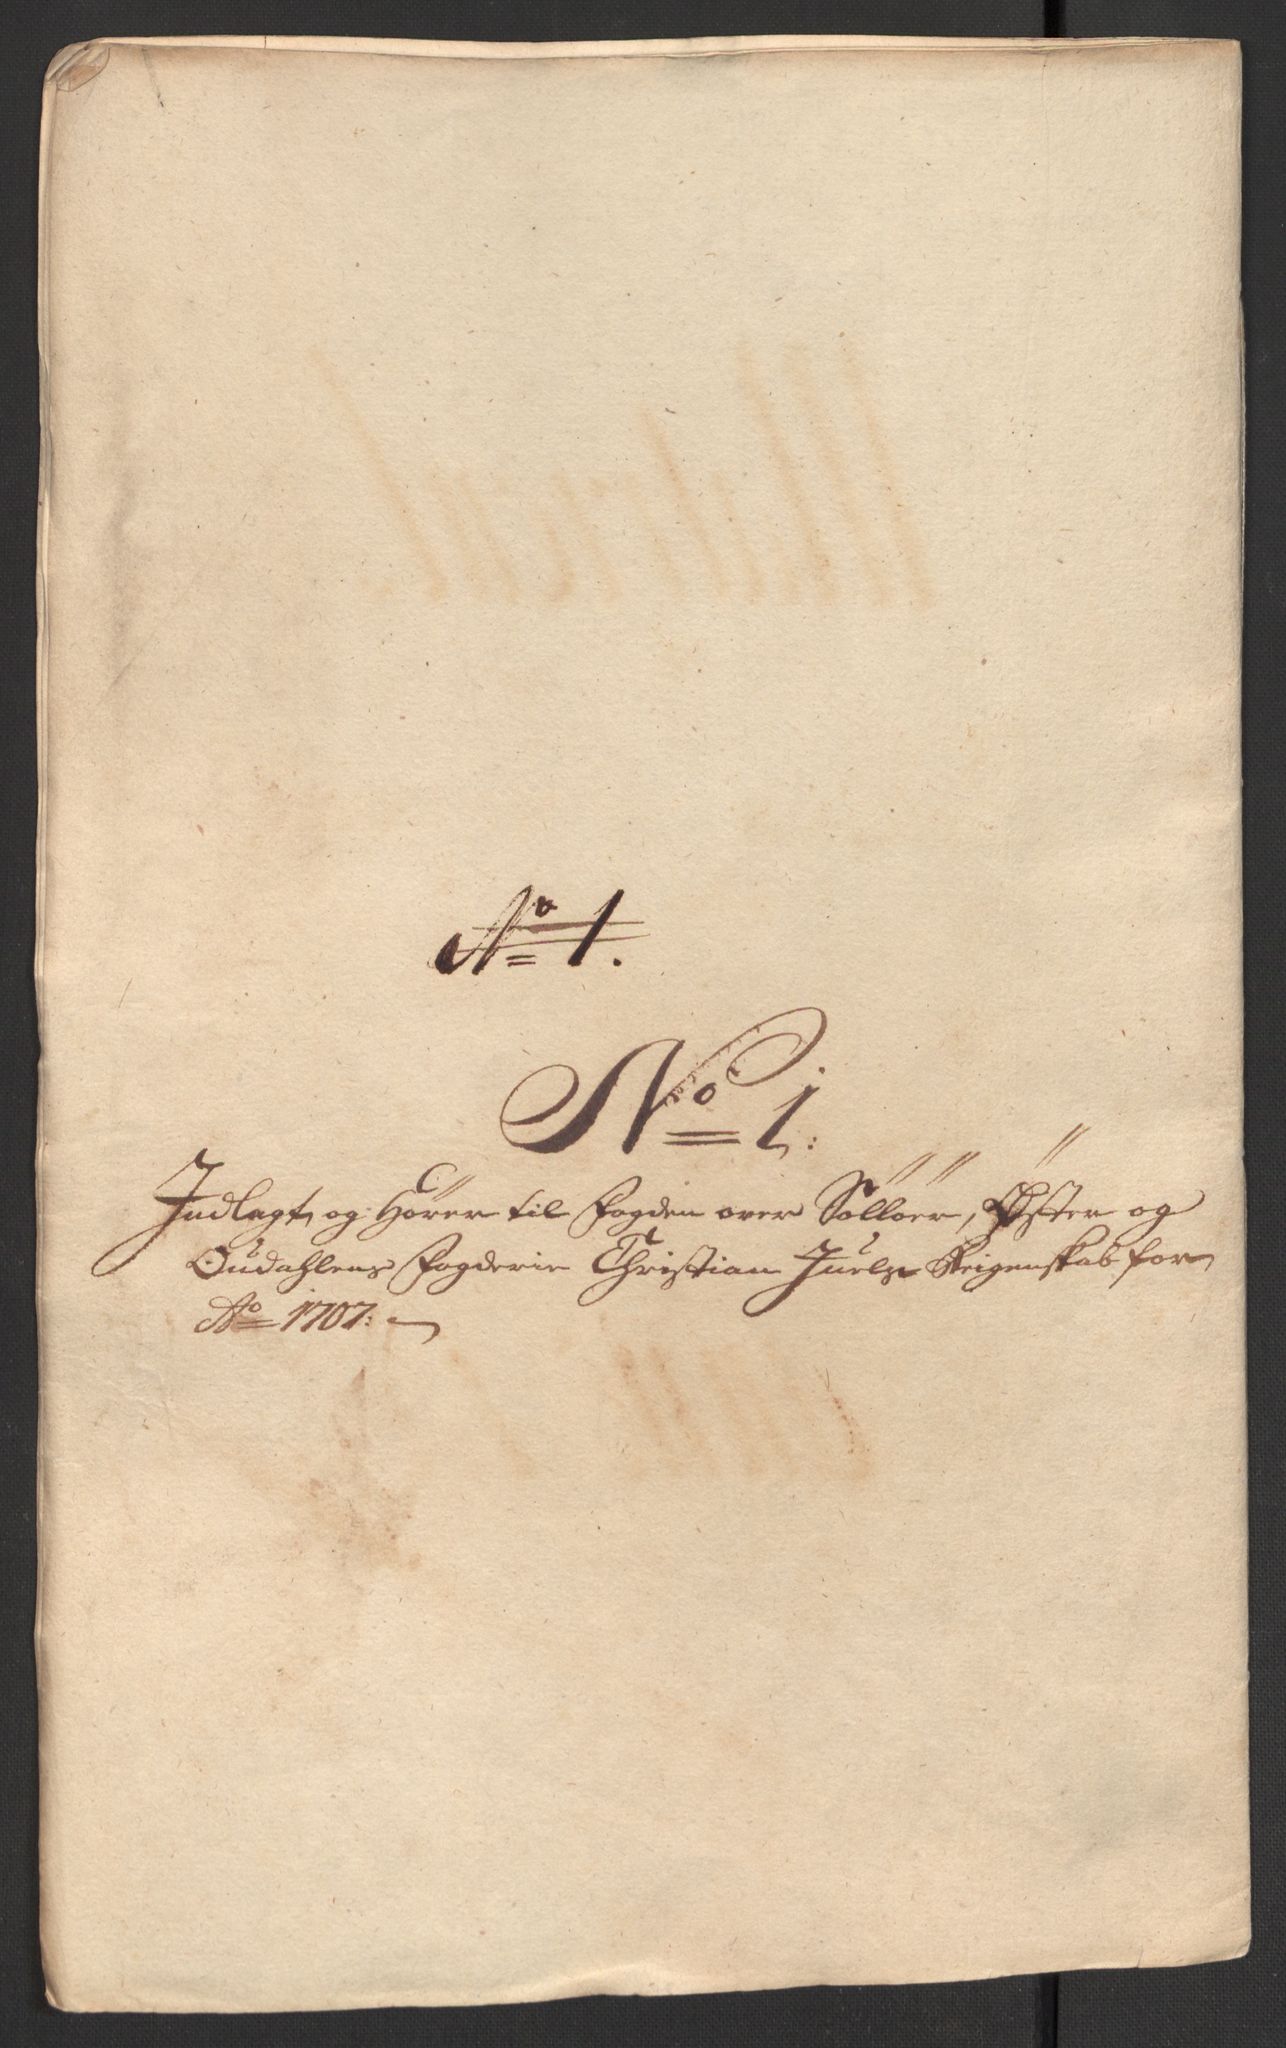 No 1.
No 1:
Indlagt og Hörer til Fogden over Solloer, Öster og
Oudahlens Fogderie Christian Juels Reigenskab for
Ao 1707: